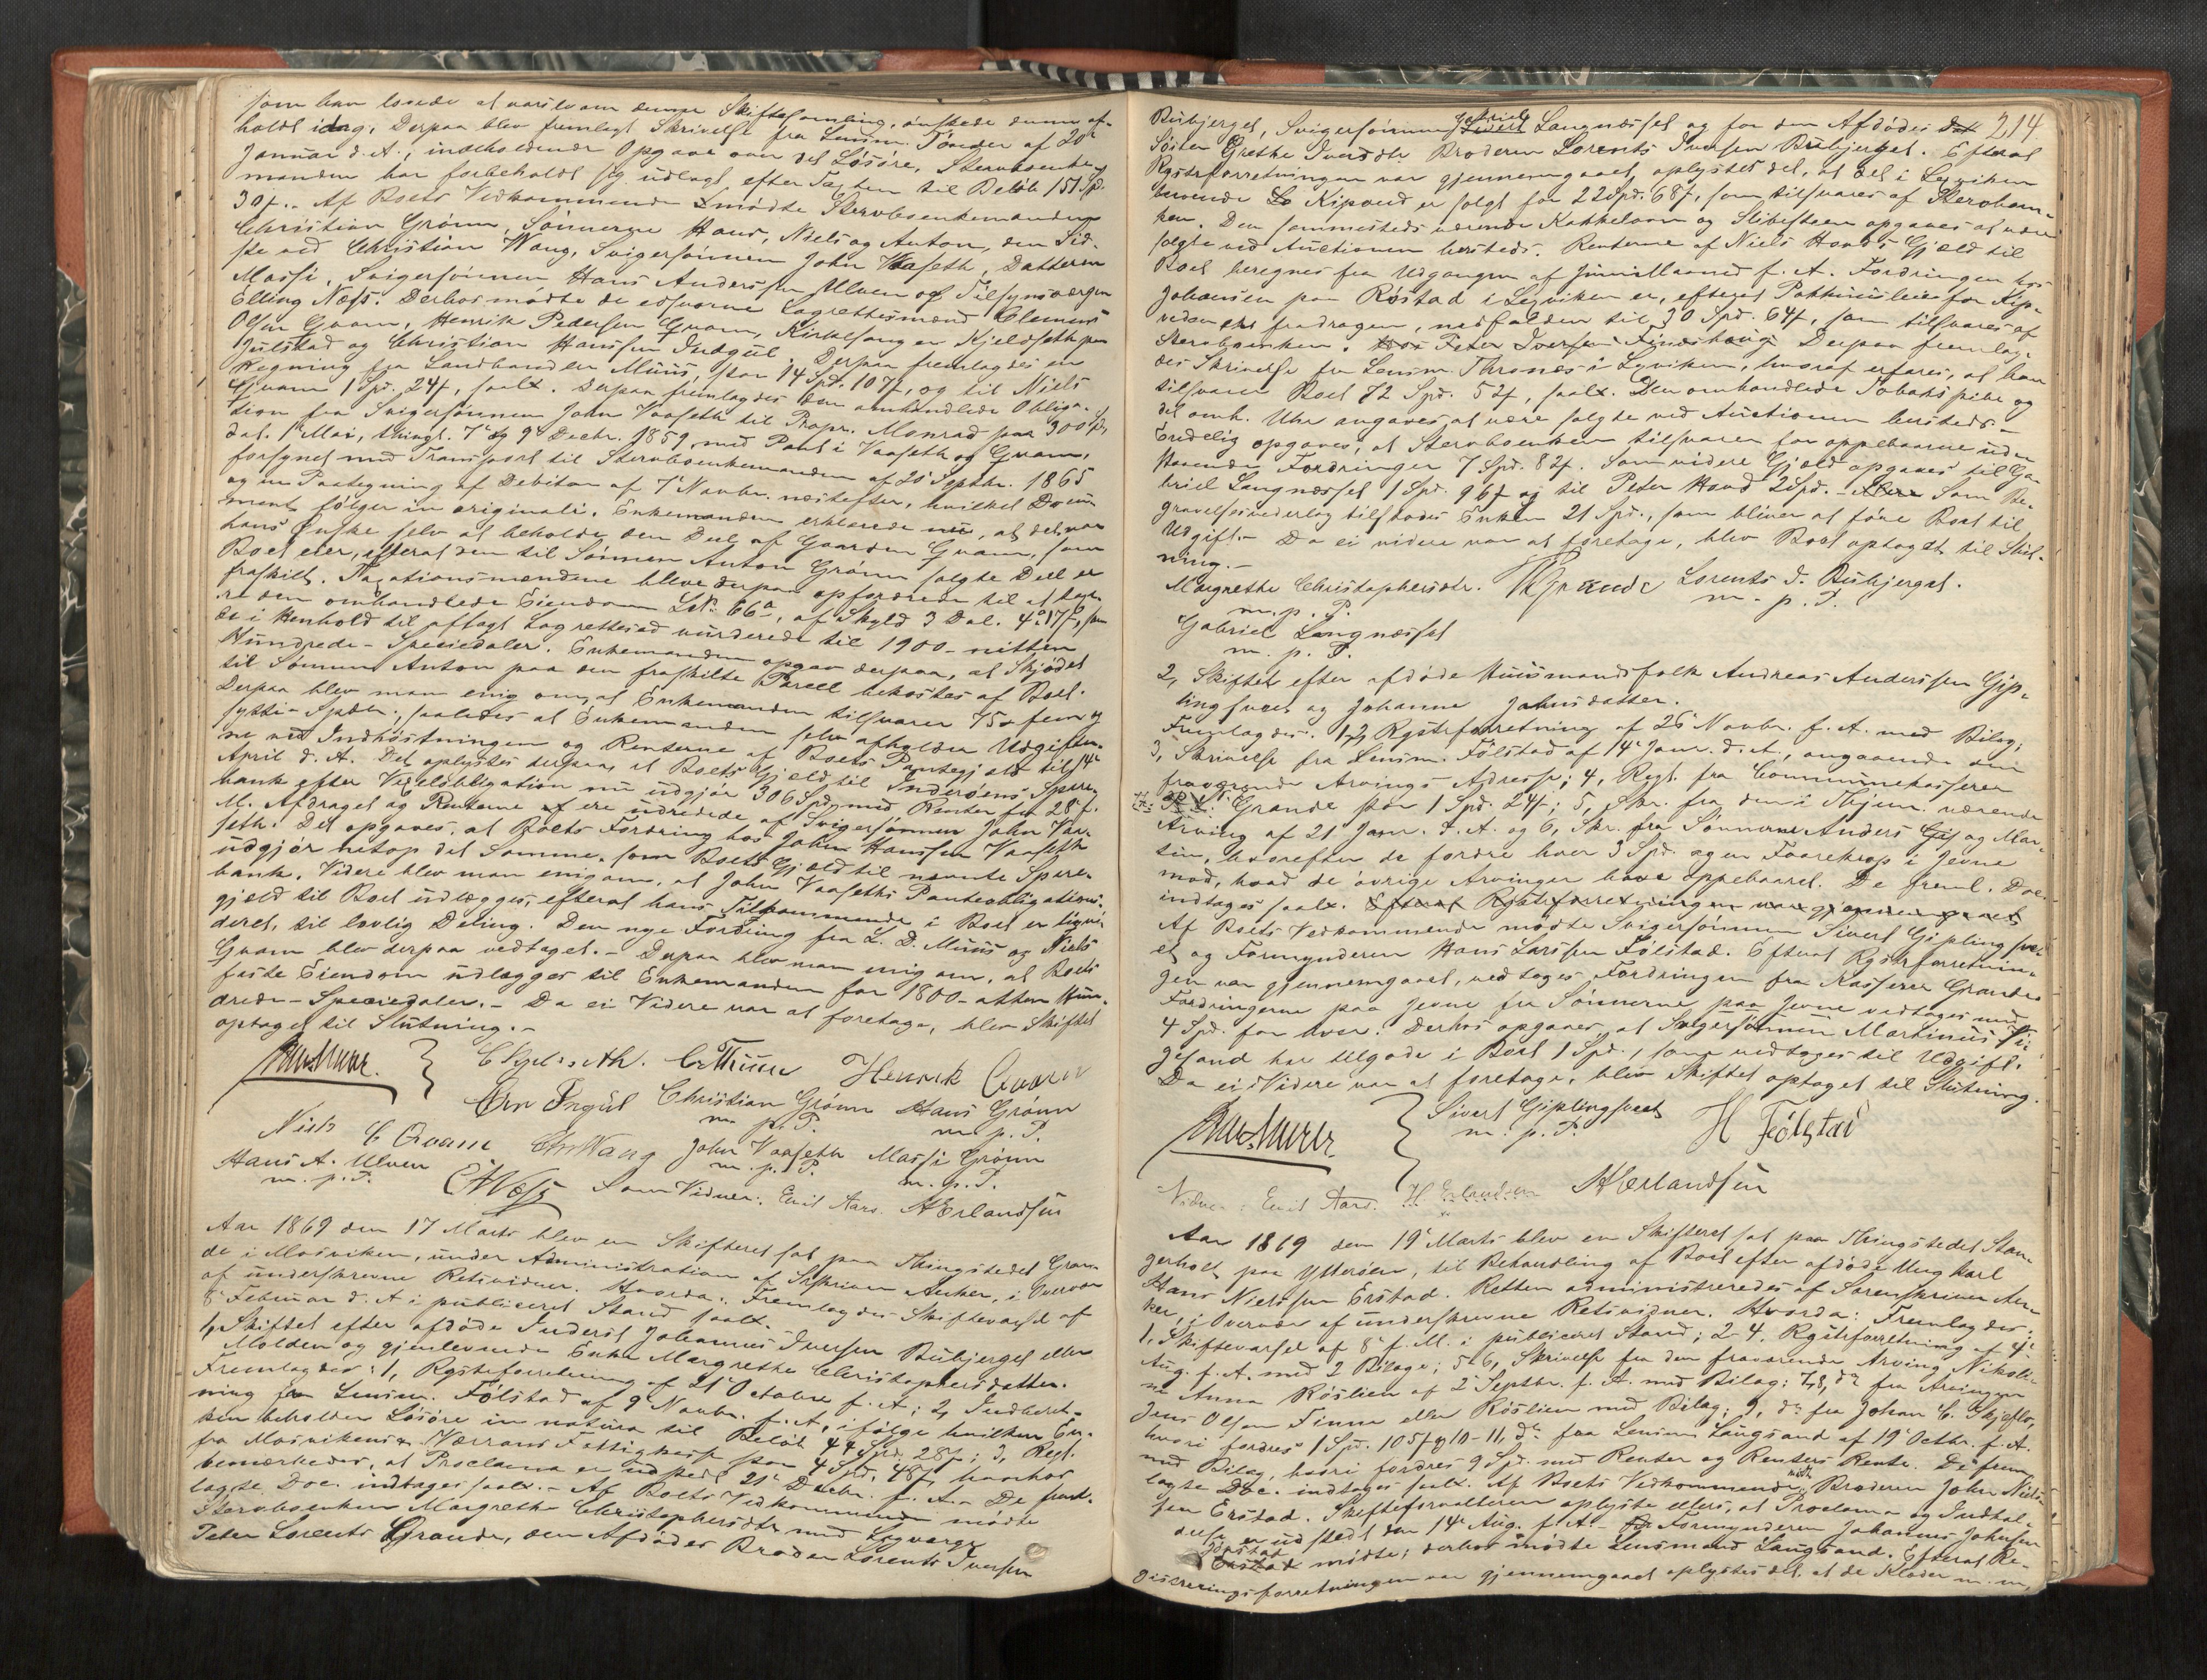 som han lovede at varsle om denne Skiftesamling, ønskede denne af-
holdt idag. Derpaa blev fremlagt Skrivelse fra Lensm. Tønder af 20de
Januar d. A., indeholdende Opgave over det Løsøre, Stervboenke-
manden har forbeholdt sig udlagt efter Taxten til Beløb 151 Spd.
30 s. Af Boets Vedkommende mødte Stervboenkemanden
Christian Grønn, Sønnerne Hans, Niels og Anton, den Sid-
ste ved Christian Wang, Svigersønnen John Vaaseth, Datteren
Massi, Svigersønnen Hans Anderssen Ulven og Tilsynsværgen
Elling Næss. Derhos mødte de edsvorne Lagrettesmænd Clemens
Olsen Qvam, Henrik Pedersen Qvam, Kirkesanger Kjeldseth paa
Julstad og Christian Hanssen Indgul. Derpaa fremlagdes en
Regning fra Landhandler Muus, stor 14 Spd. 107 s, og til Niels
Qvam 1 Sp. 24 s, saalx. Derpaa fremlagdes den omhandlede Obliga-
tion fra Svigersønnen John Vaaseth til Propr. Monrad paa 300 Sp.
dat. 1de Mai, thingl. 7de og 9de Decbr. 1859 med Pant i Vaaseth og Qvam,
forsynet med Transport til Stervboenkemanden af 20de Septbr. 1865
og en Paategning af Debitor af 7de Novbr. næstefter, hvilket Docu-
ment følger in originali. Enkemanden erklærede nu, at det var
hans Ønske selv at beholde den Deel af Gaarden Qvam, som
Boet eier, efterat den til Sønnen Anton Grønn solgte Deel er
fraskilt. Taxationsmændene bleve derpaa opfordrede til at taxe-
re den omhandlede Eiendom LNo. 66a, af Skyld 3 Dal. 4 17 s, som
de i Henhold til aflagt Lagrettesed vurderede til 1900 - nitten
Hundrede - Speciedaler. Enkemanden opgav derpaa, at Skjødet
til Sønnen Anton paa den fraskilte Parcel bekostes af Boet.
Derpaa blev man enig om, at Enkemanden tilsvarer 75 - fem og
sytti - Spdlr., saaledes at Enkemanden selv afholder Udgifter-
ne ved Indhøstningen og Renterne af Boets Pantegjæld til 14de
April d. A. Det oplystes derpaa, at Boets Gjæld til Inderøens Spare-
bank efter Vexelobligation nu udgjør 306 Spd. med Renter fra 28de f.
M. Afdraget og Renterne ere udredede af Svigersønnen John Vaa-
seth. Det opgaves, at Boets Fordring hos John Hanssen Vaaseth
udgjør netop det Samme, som Boets Gjæld til nævnte Spare-
bank. Videre blev man enig om, at John Vaaseths Panteobligations-
gjæld til Boet udlægges, efterat hans Tilkommende i Boet er liqvi-
deret, til lovlig Deling. Den nye Fordring fra L. D. Muus og Niels
Qvam blev derpaa vedtaget. - Derpaa blev man enig om, at Boets
faste Eiendom udlægges til Enkemanden for 1800 - atten Hun-
drede - Speciedaler. - Da ei Videre var at foretage, blev Skiftet
optaget til Slutning. -
Henrik Qvam
Chn Ingul Christian Grønn Hans Grønn
m. p. P. m. p. P.
Niels C Qvam Chr Wang John Vaaseth Massi Grønn
Hans A. Ulven m. p. P. m. p. P.
m. p. P. E Næss Som Vidner: Emil Aars. H Erlandsen
Aar 1869 den 17 Marts blev en Skifteret sat paa Thingstedet Gran-
de i Mosviken, under Administration af Srskriver Anker, i Overvær
af underskrevne Retsvidner. Hvorda: Fremlagdes Skiftevarsel af
8de Februar d. A. i publiceret Stand saalx.
1, Skiftet efter afdøde Inderst Johannes Iversen Bubjerget eller
Molden og gjenlevende Enke Margrethe Christophersdatter.
Fremlagdes: 1, Rgstrforretning af 21de Octobr f. A; 2, Indberet-
ning fra Lensm. Følstad af 9de Novbr. f. A., ifølge hvilken En-
ken beholder Løsøre in natura til Beløb 44 Spd. 28 s; 3, Regl.
fra Mosvikens & Værrans Fattigkasse stor 4 Spd. 48 s, hvorhos
bemærkedes, at Proclama er udstedt 21de Decbr. f. A. - De frem-
lagte Doc. indtages saalx. - Af Boets Vedkommende mødte
Stervboenken Margrethe Christophersdtr med Lagværge
Peter Lorents Grande, den Afdødes Broder Lorents Iversen
214
Bubjerget, Svigersønnen Gabriel Langnæsset og for den Afdødes
Søster Grethe Iversdtr Broderen Lorents Iversen Bubjerget. Efterat
Rgstrforretningen var gjennemgaaet, oplystes det, at det i Lexviken
værende Kipved er solgt for 22 Spd. 68 s, som tilsvares af Stervboen-
ken. Den sammesteds værende Kakkelovn og Slibesteen opgaves at være
solgte ved Auctionen hersteds. Renterne af Niels Hovds Gjæld til
Boet beregnes fra Udgangen af Juni Maaned f. A. Fordringen hos
Johansen paa Røstad i Lexviken er, efterat Pakhuusleie for Kip-
veden er fradragen, nedfalden til 30 Spd. 64 s, som tilsvares af
Stervboenken. Hos Peter Iversen Finshaug. Derpaa fremlag-
des Skrivelse fra Lensm. Thronæs i Lexviken, hvoraf erfares, at han
tilsvarer Boet 72 Spd. 52 s, saalx. Den omhandlede Tobakspibe og
det omh. Uhr angaves at være solgte ved Auctionen hersteds. -
Endelig opgaves, at Stervboenken tilsvarer for oppebaarne uden
staaende Fordringer 7 Spd. 82 s. Som videre Gjæld opgaves til Ga-
briel Langnæsset 1 Spd. 96 s og til Peter Hovd 2 Spd. - Som Be-
gravelsesvederlag tilstodes Enken 21 Spd., som bliver at føre Boet til
Udgift. - Da ei videre var at foretage, blev Boet optaget til Slut-
ning. -
Margrethe Christophersdtr. Grande Lorents I. Bubjerget.
m. p. P. m. p. P.
Gabriel Langnæsset
m. p. P.
2, Skiftet efter afdøde Huusmandsfolk Andreas Anderssen Gip-
lingsvet og Johanne Johnsdatter.
Fremlagdes: 1-2, Rgstrforretning af 26de Novbr. f. A. med Bilag;
3, Skrivelse fra Lensm. Følstad af 14de Janr. d. A., angaaende den
fraværende Arvings Adresse; 4, Regl. fra Communekasserer
Grande stor 1 Spd. 24 s; 5, Skr. fra den i Thjem værende
Arving af 21 Janr. d. A. og 6, Skr. fra Sønnerne Anders og Mar-
tin, hvorefter de fordre hver 3 Spd. og en Faarekrop i Jevne
mod, hvad de øvrige Arvinger have oppebaaret. De freml. Doc.
indtages saalx. Efterat Rgstrforretningen var gjennemgaaet
Af Boets Vedkommende mødte Svigersønnen Sivert Giplingsve-
et og Formynderen Hans Larssen Følstad. Efterat Rgstrforretnin-
gen var gjennemgaaet, vedtoges Fordringen fra Kasserer Grande.
Fordringerne paa Jevne fra Sønnerne paa Jevne vedtoges med
4 Spd. for hver. Derhos opgaves, at Svigersønnen Martinus
gesand har tilgode i Boet 1 Spd., som vedtoges til Udgift.
Da ei Videre var at foretage, blev Skiftet optaget til Slutning.
Sivert Giplingsveet H Følstad
m. p. P.
Vidner: Emil Aars. H. Erlandsen H Erlandsen
Aar 1869 den 19de Marts blev en Skifteret sat paa Thingstedet Stan-
gerholt paa Ytterøen, til Behandling af Boet efter afdøde Ungkarl
Hans Nielssen Erstad. Retten administreredes af Sorenskriver An-
ker, i Overvær af underskrevne Retsvidner. Hvorda: Fremlagdes:
1, Skiftevarsel af 8de f. M. i publiceret Stand; 2-4, Rgstrforretning af 4de
Aug. f. A. med 2 Bilage; 5-6, Skrivelse fra den fraværende Arving Nikoli-
ne Anna Røslien af 2de Septbr. f. A. med Bilag; 7-8, do fra Arvingen
Jens Olsen Finne eller Røslien med Bilag; 9, do fra Johan C. Skjeflo,
hvori fordres 1 Spd. 105 s og 10-11, do fra Lensm. Langsand af 19de Octbr. f. A.
med Bilag, hvori fordres 9 Spd. med Renter og Renters Rente. De frem-
lagte Doc. indtages saalx. Af Boets Vedkommende mødte Broderen John Niels-
sen Erstad. Skifteforvalteren oplyste ellers, at Proclama og Indkal-
delse er udstedt den 14de Aug. f. A. - Formynderen Johannes Johnsen
Erstad mødte; derhos mødte Lensmand Langsand. Efterat Re-
gistreringsforretningen var gjennemgaaet oplystes det, at de Klæder m. m.,